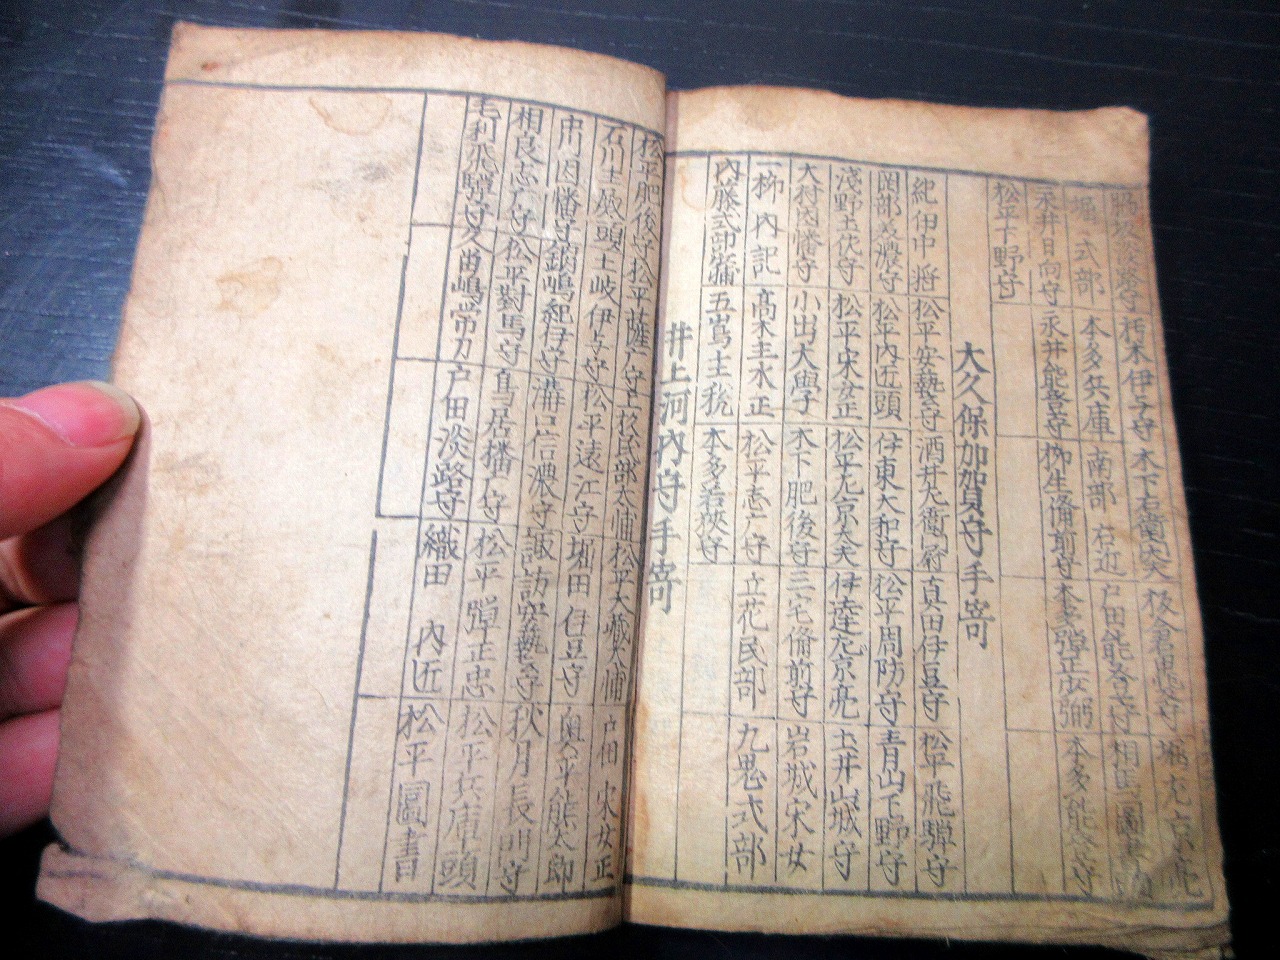 脇坂淡路守 朽木伊与守 木下右衛門大夫 板倉 守 堀左京亮
堀式部 本多兵庫 南部右近 戸田能登守 相馬圖書
永井日向守 永井能登守 柳生備前守 本多弾正少弼 本多能登守
松平下野守
大久保加賀守手寄
紀伊中将 松平安藝守 酒井左衛門尉 真田伊豆守 松平飛騨守
岡部美濃守 松平内匠頭 伊東大和守 松平周防守 青山下野守
淺野土佐守 松平宋女正 松平左京大夫 伊達左京亮 土井山城守
大村因幡守 小出大學 木下肥後守 三宅備前守 岩城宋女
一柳内記 高木主水正 松平志广守 立花民部 九鬼式部
内藤式部少輔 五嶌主税 本多若狭守
井上河内守手寄
松平肥後守 松平薩广守 一 民部大輔 松平大蔵大輔 戸田宋女正
石川主殿頭 土岐伊与守 松平遠江守 堀田伊豆守 奥平熊太郎
市川因幡守 鍋嶋紀伊守 溝口信濃守 諏訪安藝守 秋月長門守
相良志广守 松平對馬守 鳥居播广守 松平弾正忠 松平兵庫頭
毛利飛騨守 久留嶋帯刀 戸田淡路守 織田内匠 松平圖書